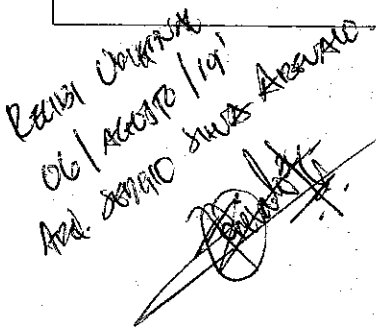 RECIBI ORIGINAL
06/AGOSTO/19'
SERGIO SILVA AREVALO